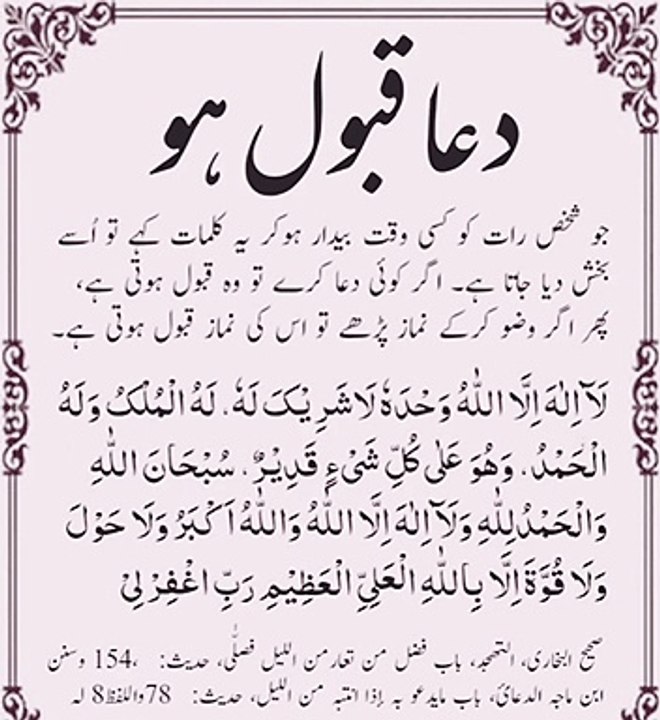 دعا قبول ہو
جو شخص رات کو کسی وقت بیدار ہوکر یہ کلمات کہے تو اُسے
بخش دیا جاتا ہے۔ اگر کوئی دعا کرے تو وہ قبول ہوتی ہے،
پھر اگر وضو کرکے نماز پڑھے تو اس کی نماز قبول ہوتی ہے۔
لَآ اِلٰهَ اِلَّا اللّٰهُ وَحْدَهٗ لَا شَرِيْكَ لَهٗ، لَهُ الْمُلْكُ وَلَهُ
الْحَمْدُ، وَهُوَ عَلٰى كُلِّ شَيْءٍ قَدِيْرٌ، سُبْحَانَ اللّٰهِ
وَالْحَمْدُ لِلّٰهِ وَلَآ اِلٰهَ اِلَّا اللّٰهُ وَاللّٰهُ اَكْبَرُ وَلَا حَوْلَ
وَلَا قُوَّةَ اِلَّا بِاللّٰهِ الْعَلِيِّ الْعَظِيْمِ رَبِّ اغْفِرْ لِيْ
صحیح البخاری، التهجد، باب فضل من تعار من اللیل فصلّٰی، حدیث: 154، وسنن
ابن ماجه الدعائ، باب مایدعو به إذا انتبه من اللیل، حدیث: 78واللفظ8 له